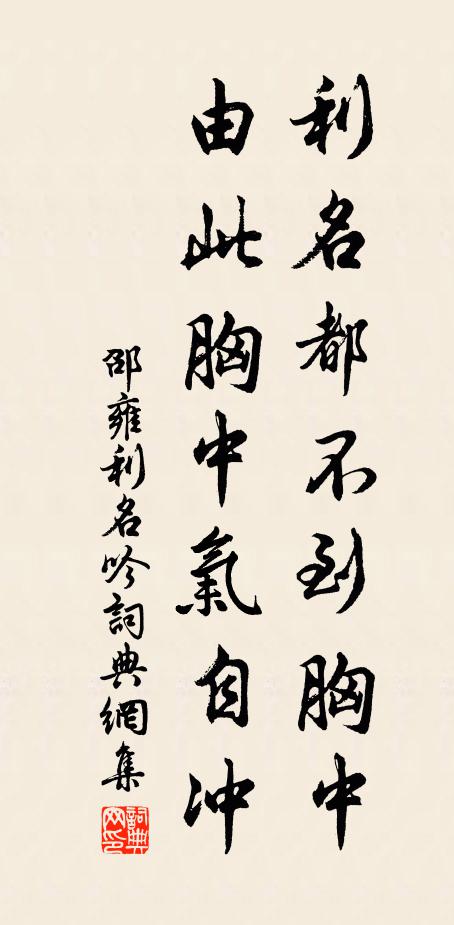 利名都不到胸中
由此胸中氣自冲
邵雍利名吟詞典網集
詞典網印